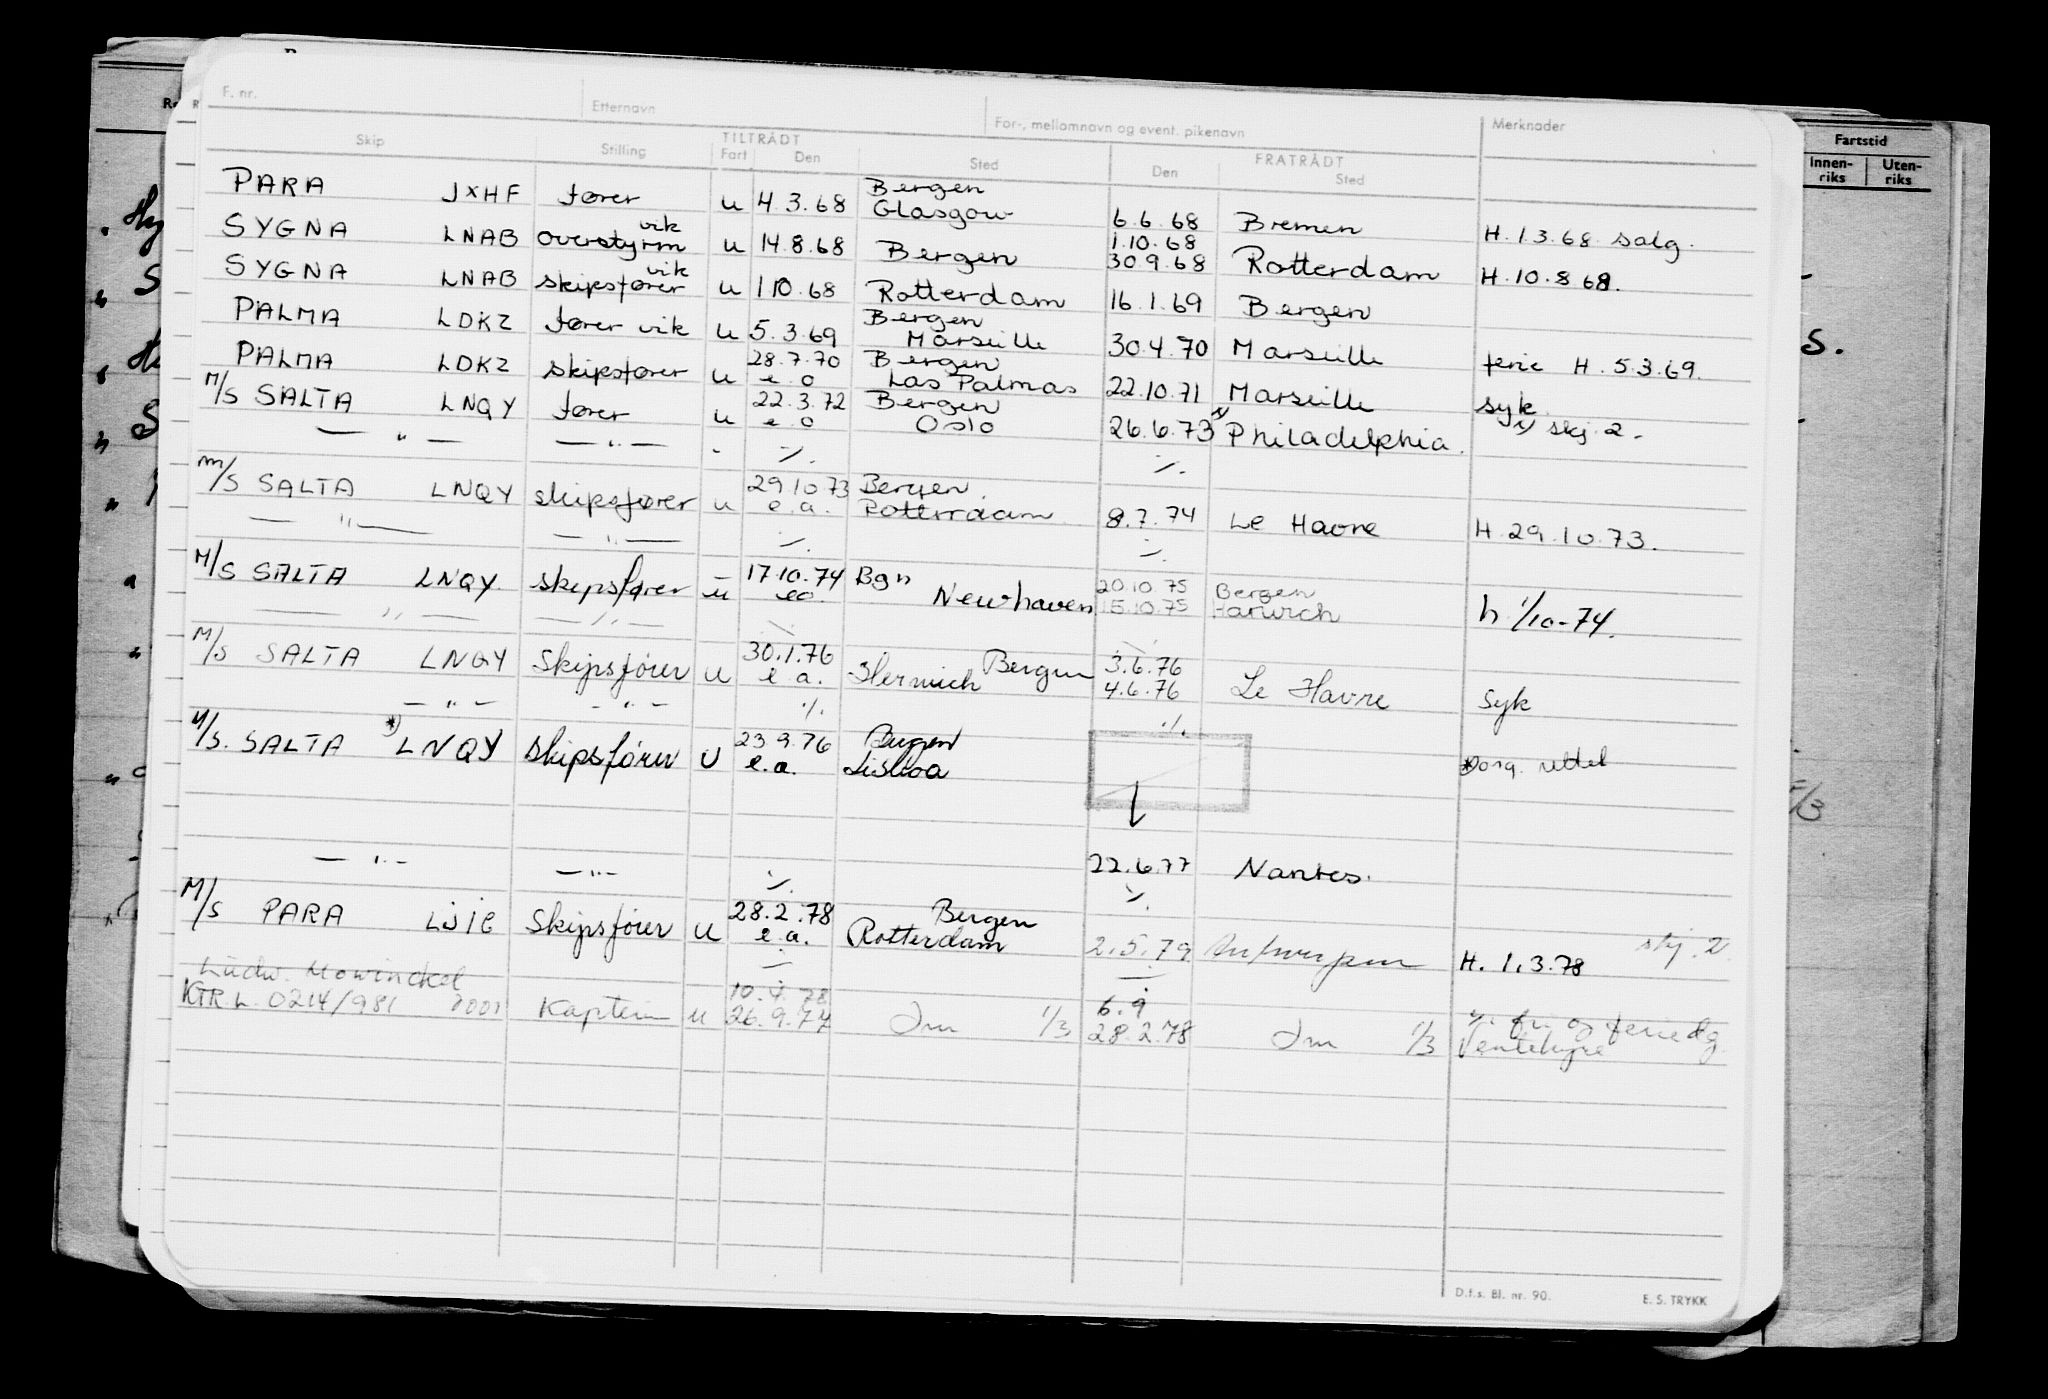 F. nr. Etternavn For-, mellomnavn og event. pikenavn Merknader
Skip Stilling TILTRÅDT Fart Den Sted FRATRÅDT Den Sted
Fartstid
Innen-riks Uten-riks
PARA JXHF fører u 4.3.68 Bergen Glasgow 6.6.68 Bremen H. 1.3.68 salg.
SYGNA LNAB overstyrm vik u 14.8.68 Bergen 1.10.68 30.9.68 Rotterdam H. 10.8.68.
SYGNA LNAB skipsfører vik u 1.10.68 Rotterdam 16.1.69 Bergen
PALMA LDKZ fører vik u 5.3.69 Bergen Marseille 30.4.70 Marseille ferie H. 5.3.69.
PALMA LDKZ skipsfører u 28.7.70 e.o Bergen Las Palmas 22.10.71 Marseille syk.
M/S SALTA LNQY fører u 22.3.72 e.o Bergen Oslo 26.6.73 x) Philadelphia. x) skj. 2.
— " — — " — - ./. ./.
M/S SALTA LNQY skipsfører u 29.10.73 e.a. Bergen. Rotterdam 8.7.74 Le Havre H. 29.10.73.
— " — — " — ./. ./.
M/S SALTA LNQY. skipsfører u 17.10.74 eo. Bgn Newhaven 20.10.75 15.10.75 Bergen Harwich h. 1/10-74.
— " — — " — ./. ./.
M/S SALTA LNQY Skipsfører u 30.1.76 e.a. Bergen Herwich 3.6.76 4.6.76 Le Havre Syk
— " — — " — ./. ./.
M/S. SALTA *) LNQY skipsfører U 23.9.76 e.a. Bergen Lisboa *) orig. rettet
— " — — " — ./. 22.6.77 Nantes. ./.
M/S PARA LIJIE Skipsfører u 28.2.78 e.a. Bergen Rotterdam 2.5.79 Antwerpen H. 1.3.78 skj. 2.
Ludw. Mowinckel 10.4.78 6.9 fri og feriedg.
KTR.L. 0214/981 0001 Kaptein u 26.9.77 1/3 28.2.78 1/3 Ventehyre
D.f.s. Bl. nr. 90. E. S. TRYKK